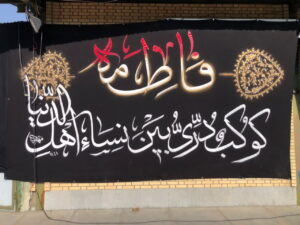 فاطمه
کوکب دُرّیٌّ بین نساء اهل الدنیا